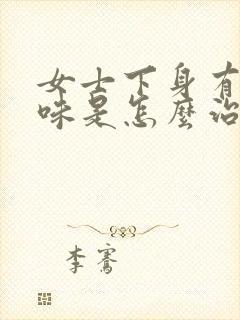 女士下身有
味是怎麼治
李騫